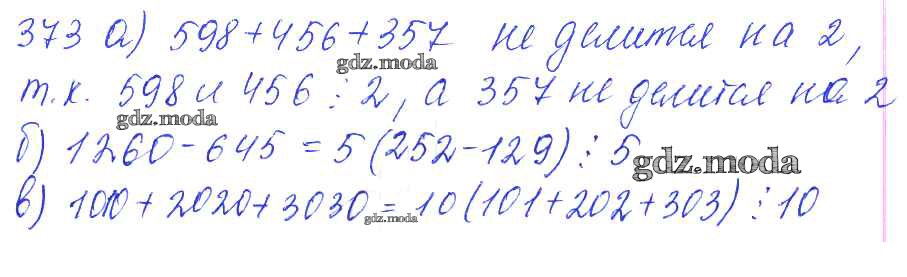 373 а) 598+456+357 не делится на 2,
gdz.moda
т.к. 598 и 456 ⋮ 2, а 357 не делится на 2
gdz.moda
б) 1260-645 = 5(252-129) ⋮ 5
gdz.moda
в) 1010+2020+3030 = 10(101+202+303) ⋮ 10
gdz.moda